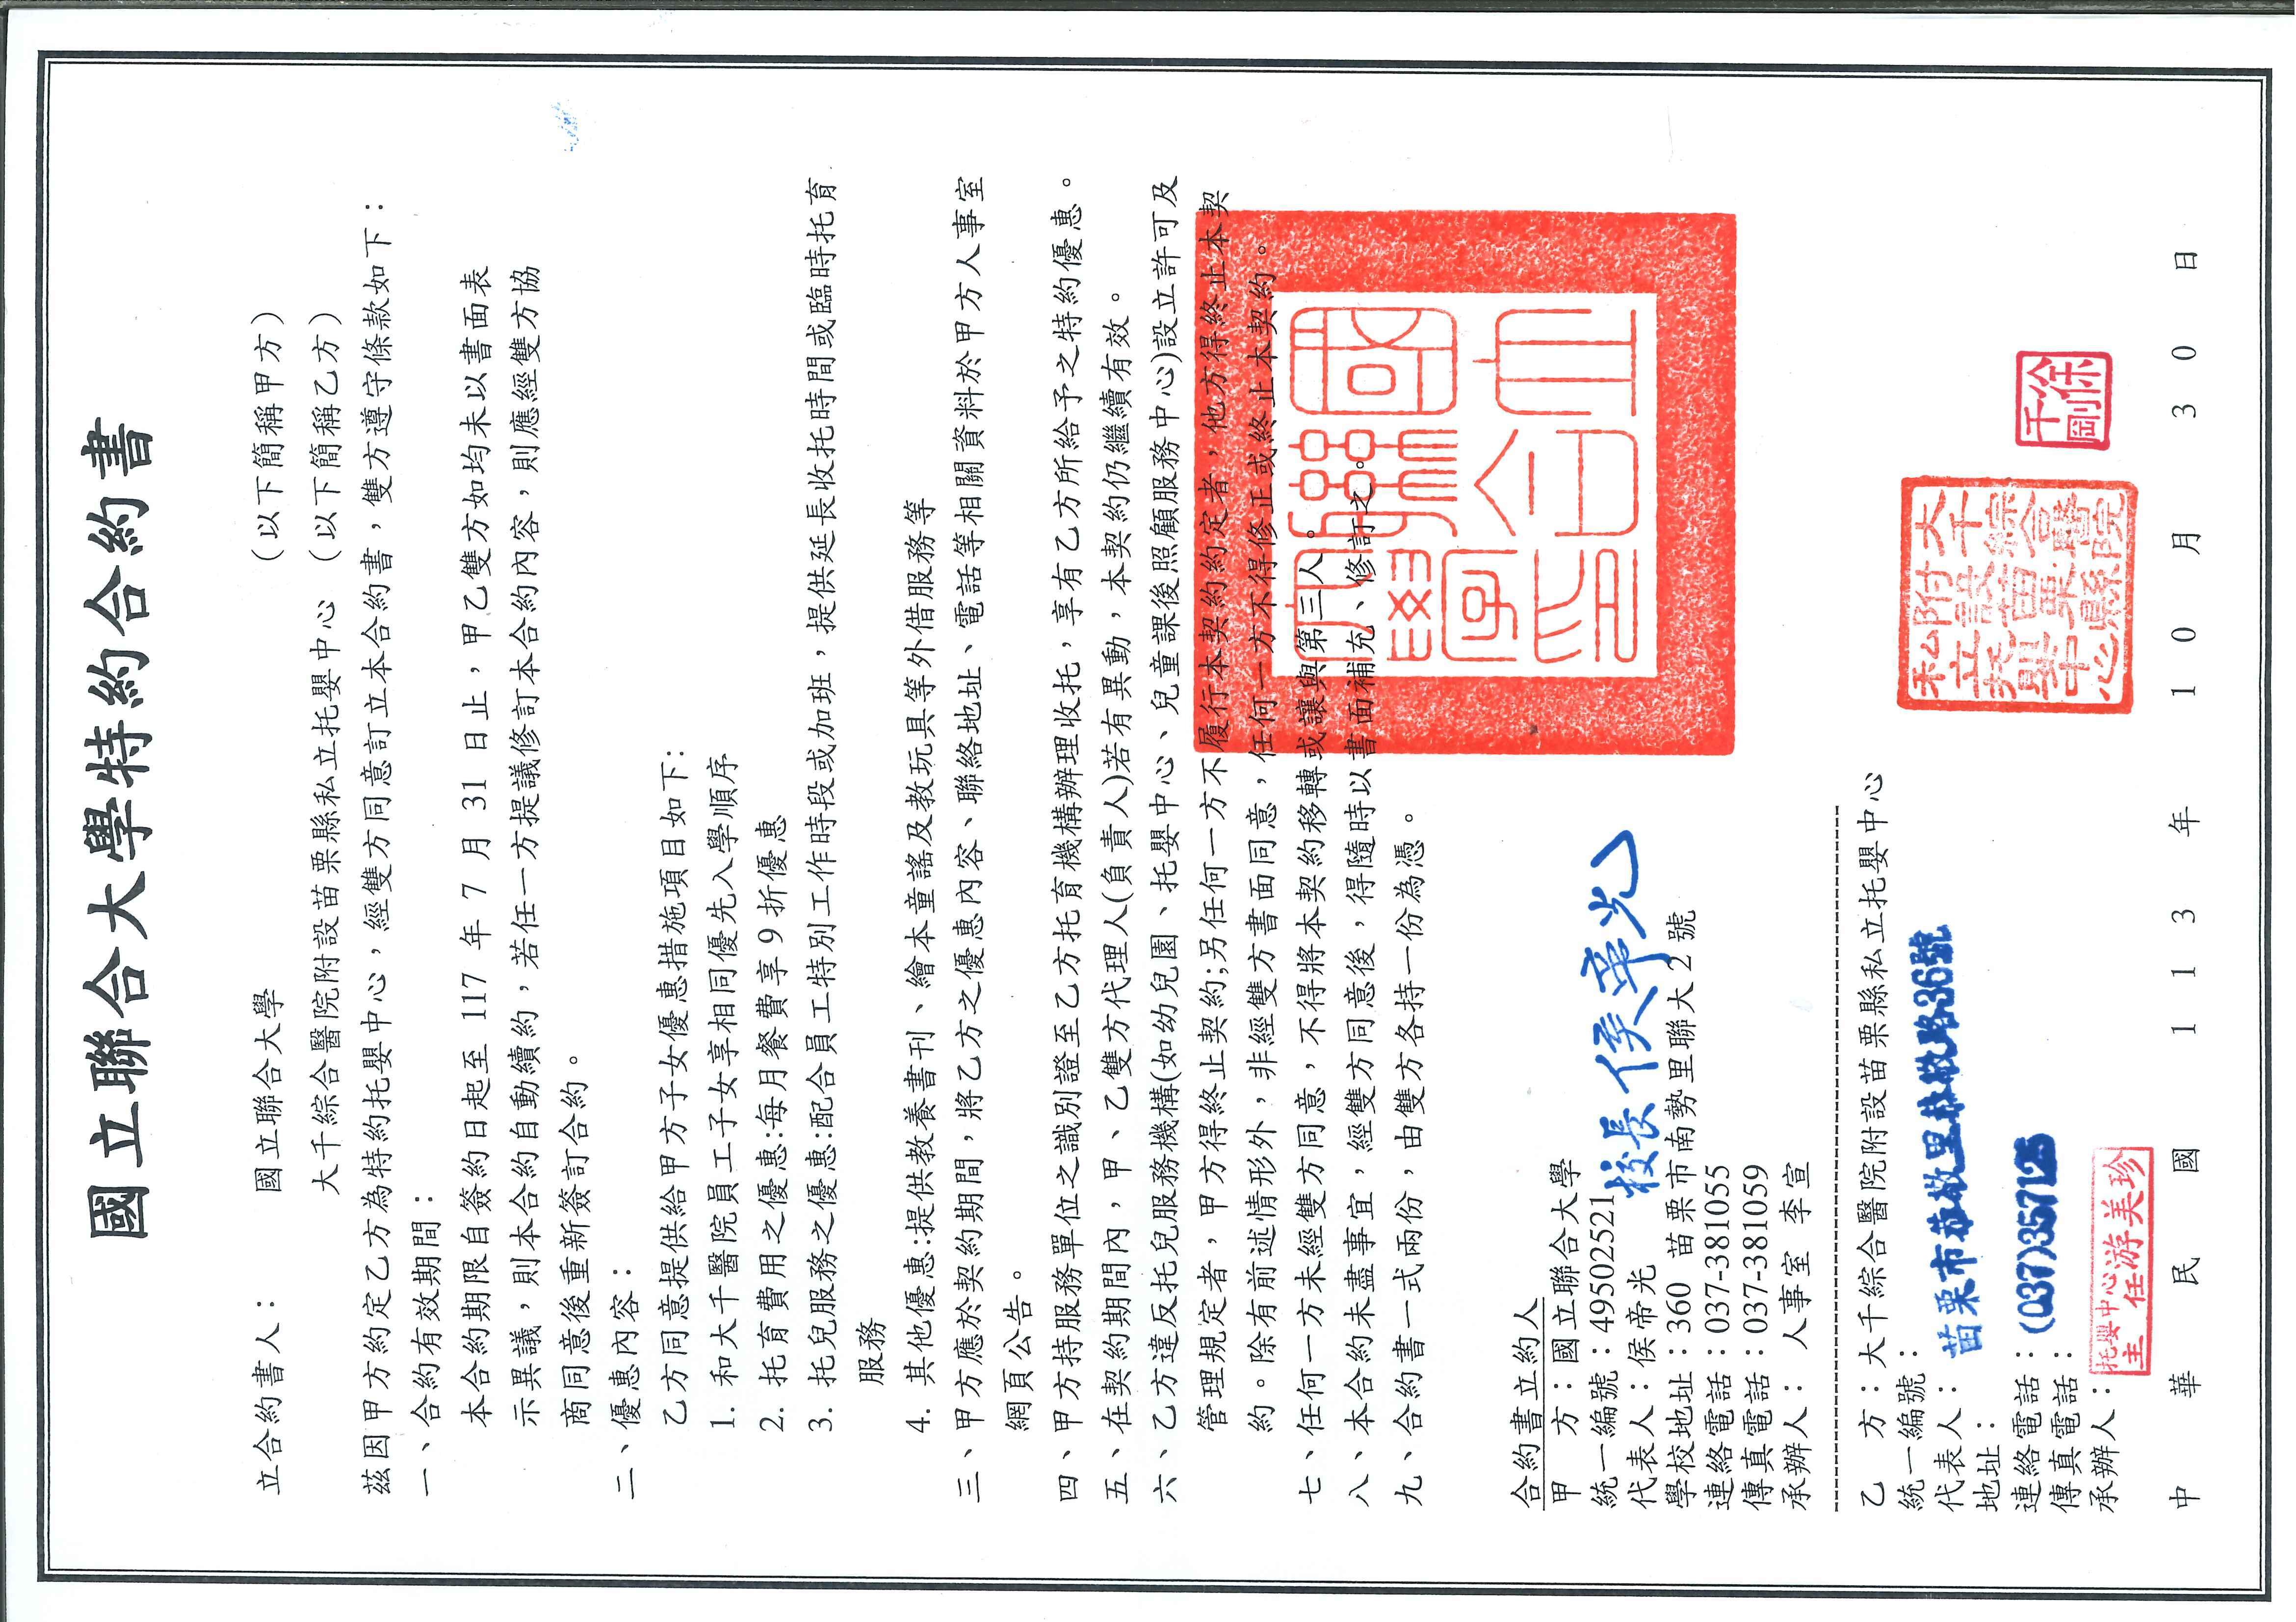 國立聯合大學特約合約書
立合約書人： 國立聯合大學 （以下簡稱甲方）
大千綜合醫院附設苗栗縣私立托嬰中心 （以下簡稱乙方）
茲因甲方約定乙方為特約托嬰中心，經雙方同意訂立本合約書，雙方遵守條款如下：
一、合約有效期間：
本合約期限自簽約日起至 117 年 7 月 31 日止，甲乙雙方如均未以書面表
示異議，則本合約自動續約，若任一方提議修訂本合約內容，則應經雙方協
商同意後重新簽訂合約。
二、優惠內容：
乙方同意提供給甲方子女優惠措施項目如下:
1. 和大千醫院員工子女享相同優先入學順序
2. 托育費用之優惠:每月餐費享 9 折優惠
3. 托兒服務之優惠:配合員工特別工作時段或加班，提供延長收托時間或臨時托育
服務
4. 其他優惠:提供教養書刊、繪本童謠及教玩具等外借服務等
三、甲方應於契約期間，將乙方之優惠內容、聯絡地址、電話等相關資料於甲方人事室
網頁公告。
四、甲方持服務單位之識別證至乙方托育機構辦理收托，享有乙方所給予之特約優惠。
五、在契約期間內，甲、乙雙方代理人(負責人)若有異動，本契約仍繼續有效。
六、乙方違反托兒服務機構(如幼兒園、托嬰中心、兒童課後照顧服務中心)設立許可及
管理規定者，甲方得終止契約;另任何一方不履行本契約約定者，他方得終止本契
約。除有前述情形外，非經雙方書面同意，任何一方不得修正或終止本契約。
七、任何一方未經雙方同意，不得將本契約移轉或讓與第三人。
八、本合約未盡事宜，經雙方同意後，得隨時以書面補充、修訂之。
九、合約書一式兩份，由雙方各持一份為憑。
合約書立約人
甲　方：國立聯合大學
統一編號：49502521
代表人：侯帝光
校長侯帝光
學校地址：360 苗栗市南勢里聯大 2 號
連絡電話：037-381055
傳真電話：037-381059
承辦人：人事室 李宣
國立聯合大學印
乙　方：大千綜合醫院附設苗栗縣私立托嬰中心
統一編號：
代表人：
地址： 苗栗市恭敬里恭敬路36號
連絡電話：(037)357125
傳真電話：
承辦人：
托嬰中心主任游美珍
大千綜合醫院附設苗栗縣私立托嬰中心
徐千剛
中 華 民 國 113 年 10 月 30 日